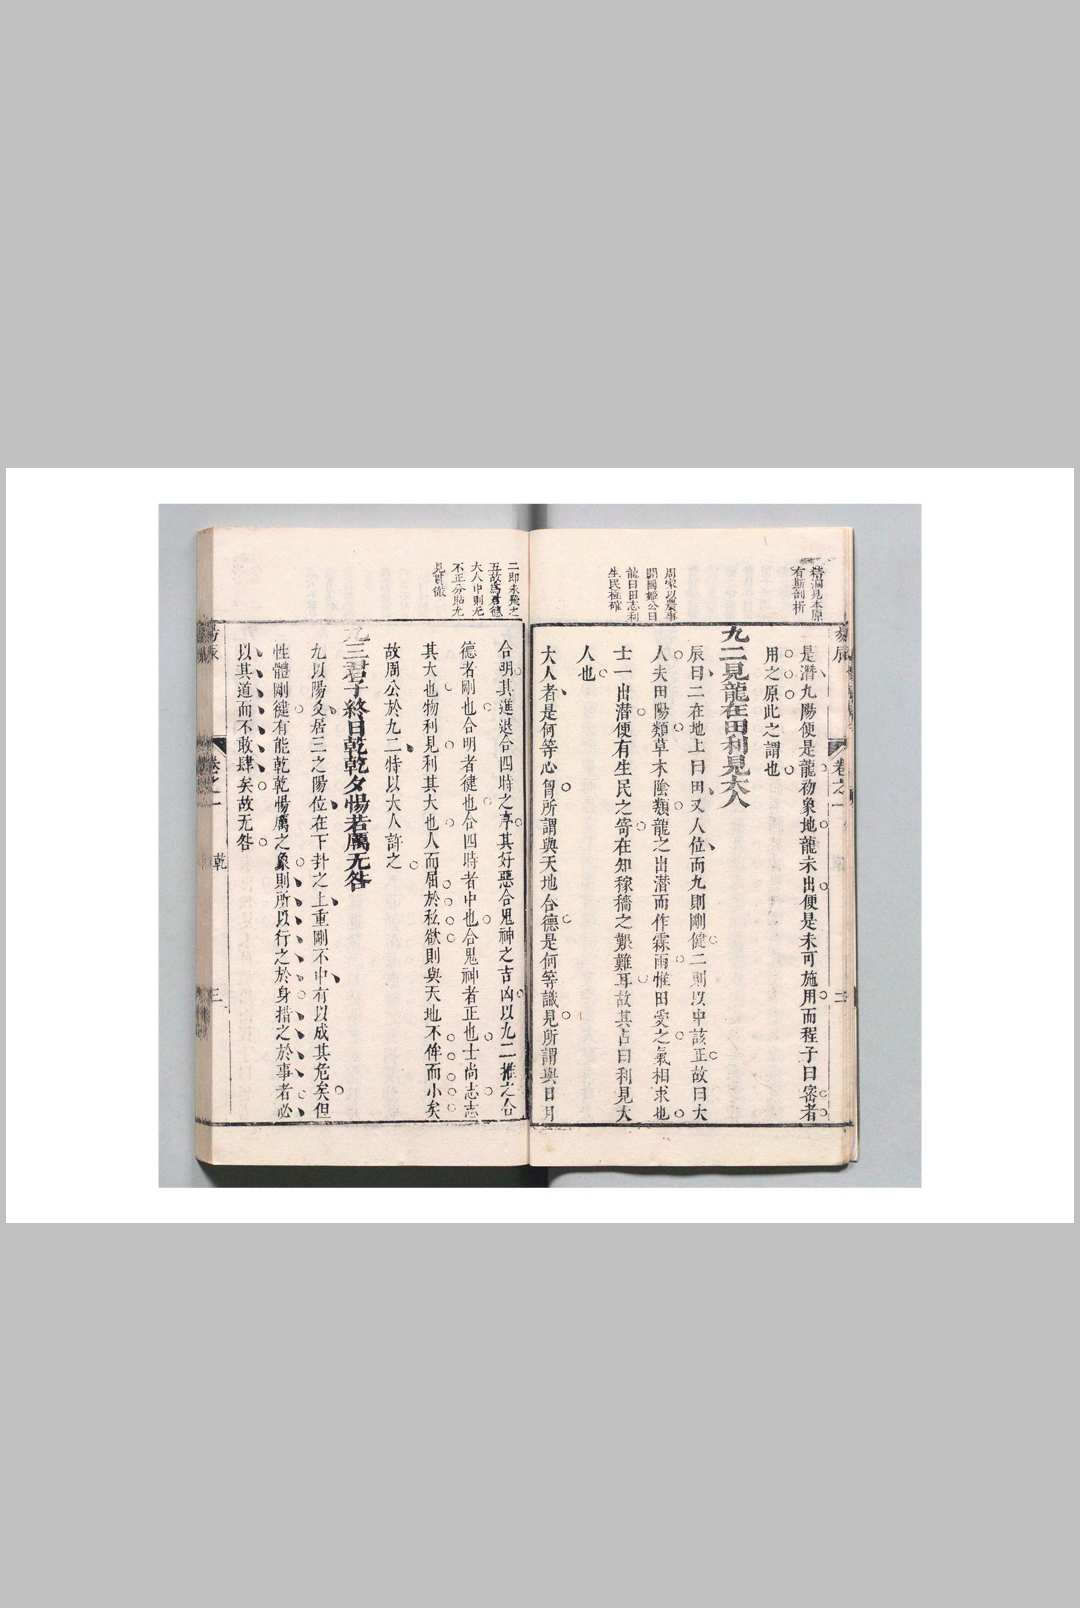 是潛九陽便是龍初象地龍未出便是未可施用而程子曰密者
用之原此之謂也
九二見龍在田利見大人
辰曰二在地上曰田又人位而九則剛健二則以中該正故曰大
人夫田陽類草木陰類龍之出潛而作霖雨惟田愛之氣相求也
士一出潛便有生民之寄在知稼穡之艱難耳故其占曰利見大
人也
大人者是何等心胷所謂與天地合德是何等識見所謂與日月
周家以農事
開國姬公曰
龍曰田志利
生民極確
有斯剖析
卷之一
二
合明其進退合四時之序其好惡合鬼神之吉凶以九二推之合
德者剛也合明者健也合四時者中也合鬼神者正也士尚志志
其大也物利見利其大也人而屈於私欲則與天地不侔而小矣
故周公於九二特以大人許之
九三君子終日乾乾夕惕若厲无咎
九以陽爻居三之陽位在下卦之上重剛不中有以成其危矣但
性體剛健有能乾乾惕厲之象則所以行之於身措之於事者必
以其道而不敢肆矣故无咎
二即未飛之
五故為君德
大人中則无
不正分貼尤
見貫徹
卷之一
乾
三